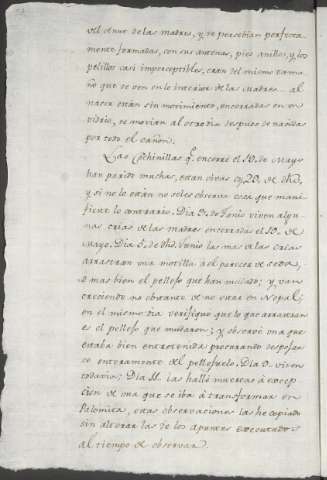 del otuer de las madres, y se percebian perfecta-
mente formadas, con sus antenas, pies anillos, y los
pelillos casi imperceptibles, eran del mismo tama-
ño que se ven en lo interior de las Madres. al
nacer están sin movimiento, encerradas en un
vidrio, se movian al otro dia despues de nacidas
por todo el cañon.
Las Cochinillas q.e encerré el 10. de Mayo
han parido muchas, estan otras oy 20. de dho,
y si no lo están no se les observa cosa que mani-
fieste lo contrario. Dia 3. de Junio viven algu-
nas crias de las madres encerradas el 10. de
Mayo. Dia 5. de dho Junio las mas de las crias
arrastran una motilla al parecer de seda,
o mas bien el pellejo que han mudado; y van
creciendo no obstante de no estar en Nopal;
en el mismo dia verifique que lo que arrastran
es el pellejo que mudaron; y observé una que
estaba bien entretenida procurando despojar-
se enteramente del pellejuelo. Dia 9. viven
todavia; Dia 11. las hallé muertas á excep-
cion de una que se iba á transformar en
Palomita, estas observaciones las he copiado
sin alterar las de los apuntes executados
al tiempo de observar.